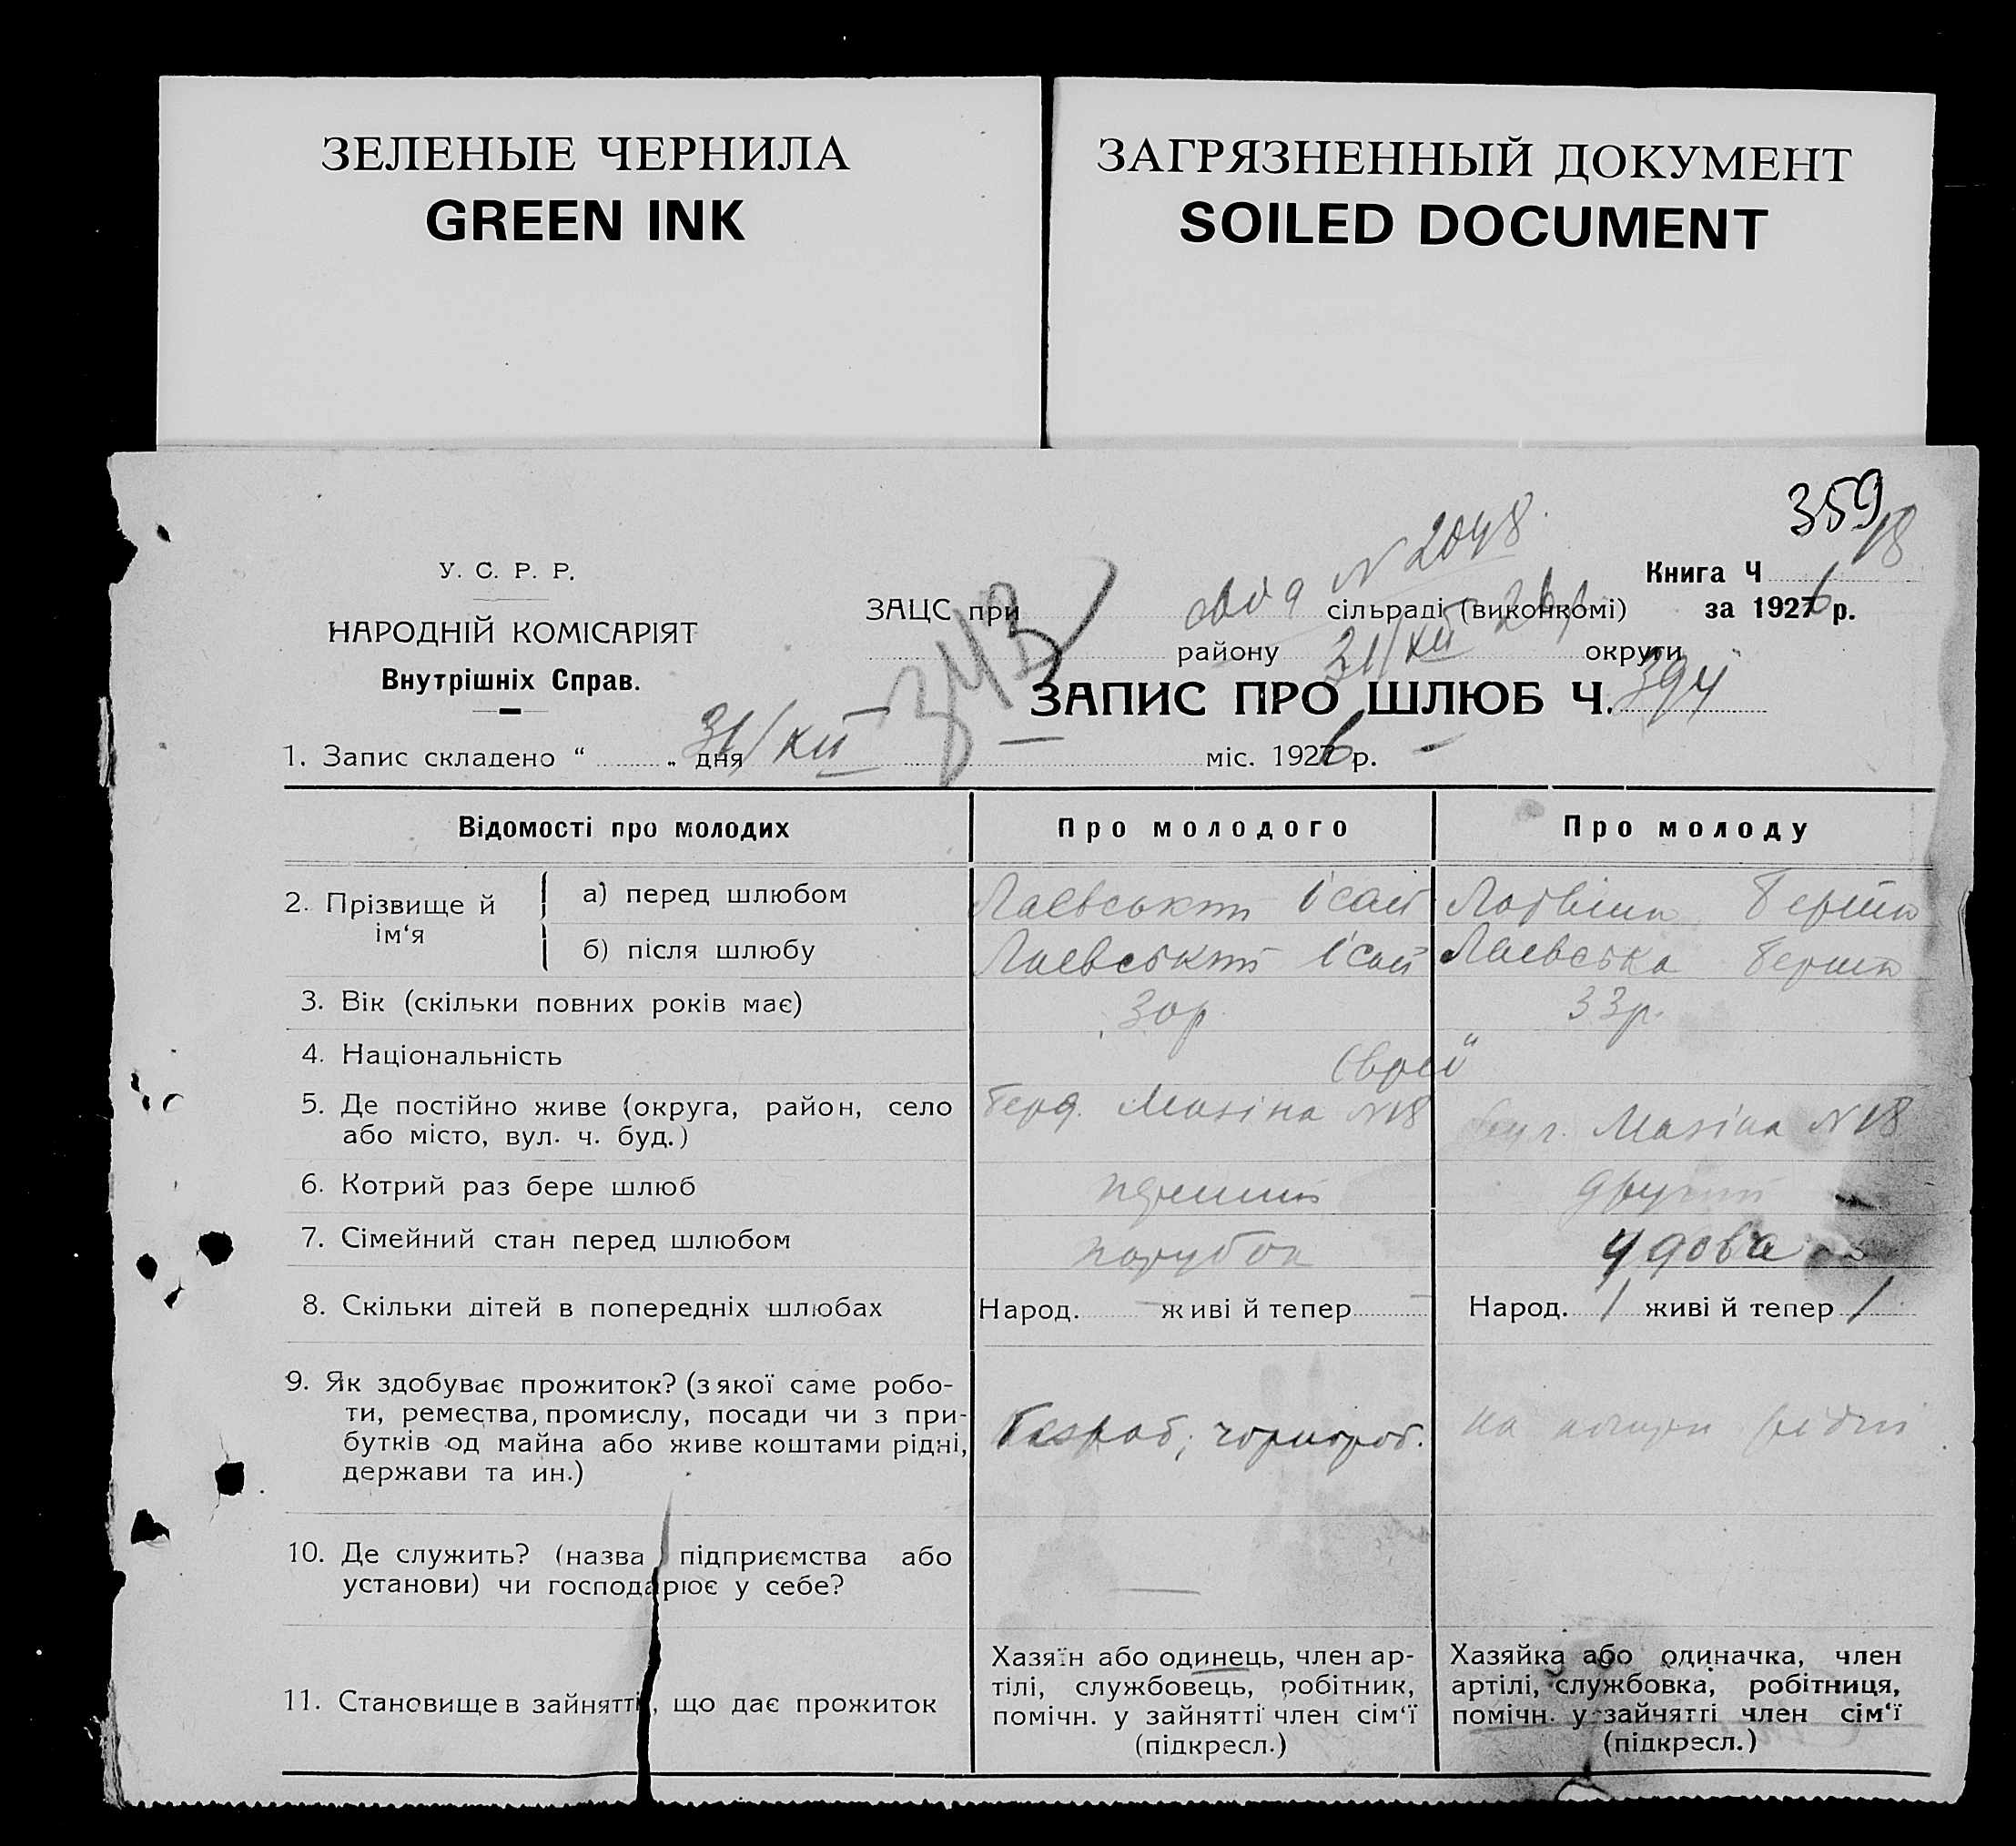 ЗЕЛЕНЫЕ ЧЕРНИЛА
GREEN INK
ЗАГРЯЗНЕННЫЙ ДОКУМЕНТ
SOILED DOCUMENT
359
18
N 2048
У. С. Р. Р.
НАРОДНІЙ КОМІСАРІЯТ
Внутрішніх Справ.
343
Книга Ч
ЗАЦС при сільраді (виконкомі) за 1926 р.
району 31/XII округи
ЗАПИС ПРО ШЛЮБ Ч. 394
1. Запис складено “ „ дня 31/XII міс. 1926 р.
Відомості про молодих Про молодого Про молоду
2. Прізвище й ім‘я
а) перед шлюбом Лаєвський Ісай Берта
б) після шлюбу Лаевський Ісай Лаевська Берта
3. Вік (скільки повних років має) 30р 33р.
4. Національність Євреї
5. Де постійно живе (округа, район, село Берд. Мазіна N18 Мазіна N18
або місто, вул. ч. буд.)
6. Котрий раз бере шлюб перший другий
7. Сімейний стан перед шлюбом парубок удова
8. Скільки дітей в попередніх шлюбах Народ. — живі й тепер — Народ. 1 живі й тепер 1
9. Як здобуває прожиток? (з якої саме робо-
ти, ремества, промислу, посади чи з при-
бутків од майна або живе коштами рідні, Безроб, чорнороб. на кошти рідні
держави та ин.)
10. Де служить? (назва підприємства або
установи) чи господарює у себе? —
11. Становище в зайнятті, що дає прожиток
Хазяїн або одинець, член ар-
тілі, службовець, робітник,
помічн. у зайнятті член сім‘ї
(підкресл.)
Хазяйка або одиначка, член
артілі, службовка, робітниця,
помічн. у зайнятті член сім‘ї
(підкресл.)